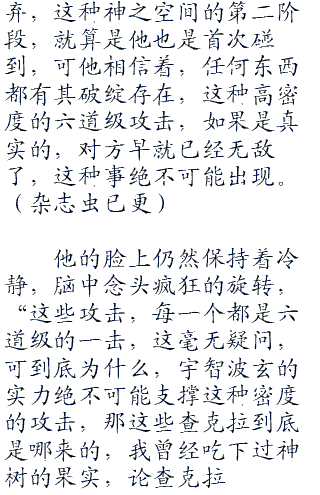 弃，这种神之空间的第二阶
段，就算是他也是首次碰
到，可他相信着，任何东西
都有其破绽存在，这种高密
度的六道级攻击，如果是真
实的，对方早就已经无敌
了，这种事绝不可能出现。
（杂志虫已更）
他的脸上仍然保持着冷
静，脑中念头疯狂的旋转，
“这些攻击，每一个都是六
道级的一击，这毫无疑问，
可到底为什么，宇智波玄的
实力绝不可能支撑这种密度
的攻击，那这些查克拉到底
是哪来的，我曾经吃下过神
树的果实，论查克拉